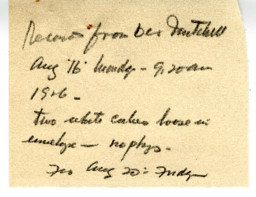 Received from Dev Mitchell
Aug 16 Monday - 9:20 am
1926 -
two white cubes loose in
envelope - no phgs.
Aug 20: Friday